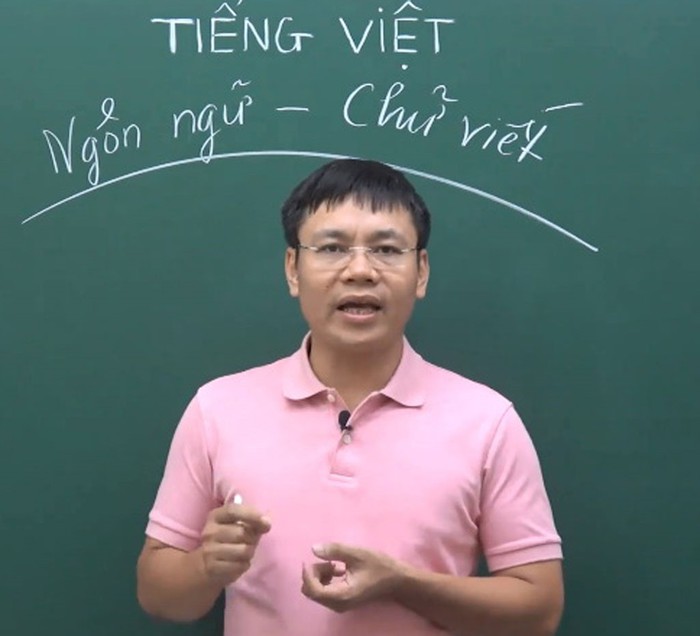 TIẾNG VIỆT
Ngôn ngữ - Chữ viết